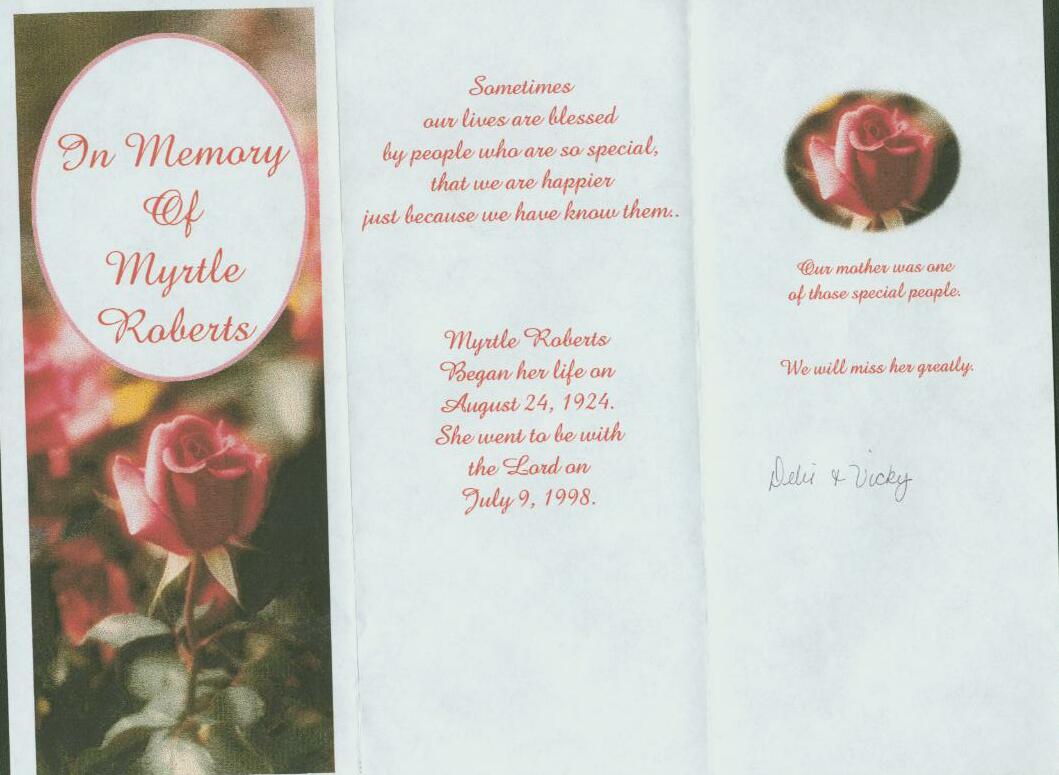 In Memory
Of
Myrtle
Roberts
Sometimes
our lives are blessed
by people who are so special,
that we are happier
just because we have know them..
Myrtle Roberts
Began her life on
August 24, 1924.
She went to be with
the Lord on
July 9, 1998.
Our mother was one
of those special people.
We will miss her greatly.
& Vicky